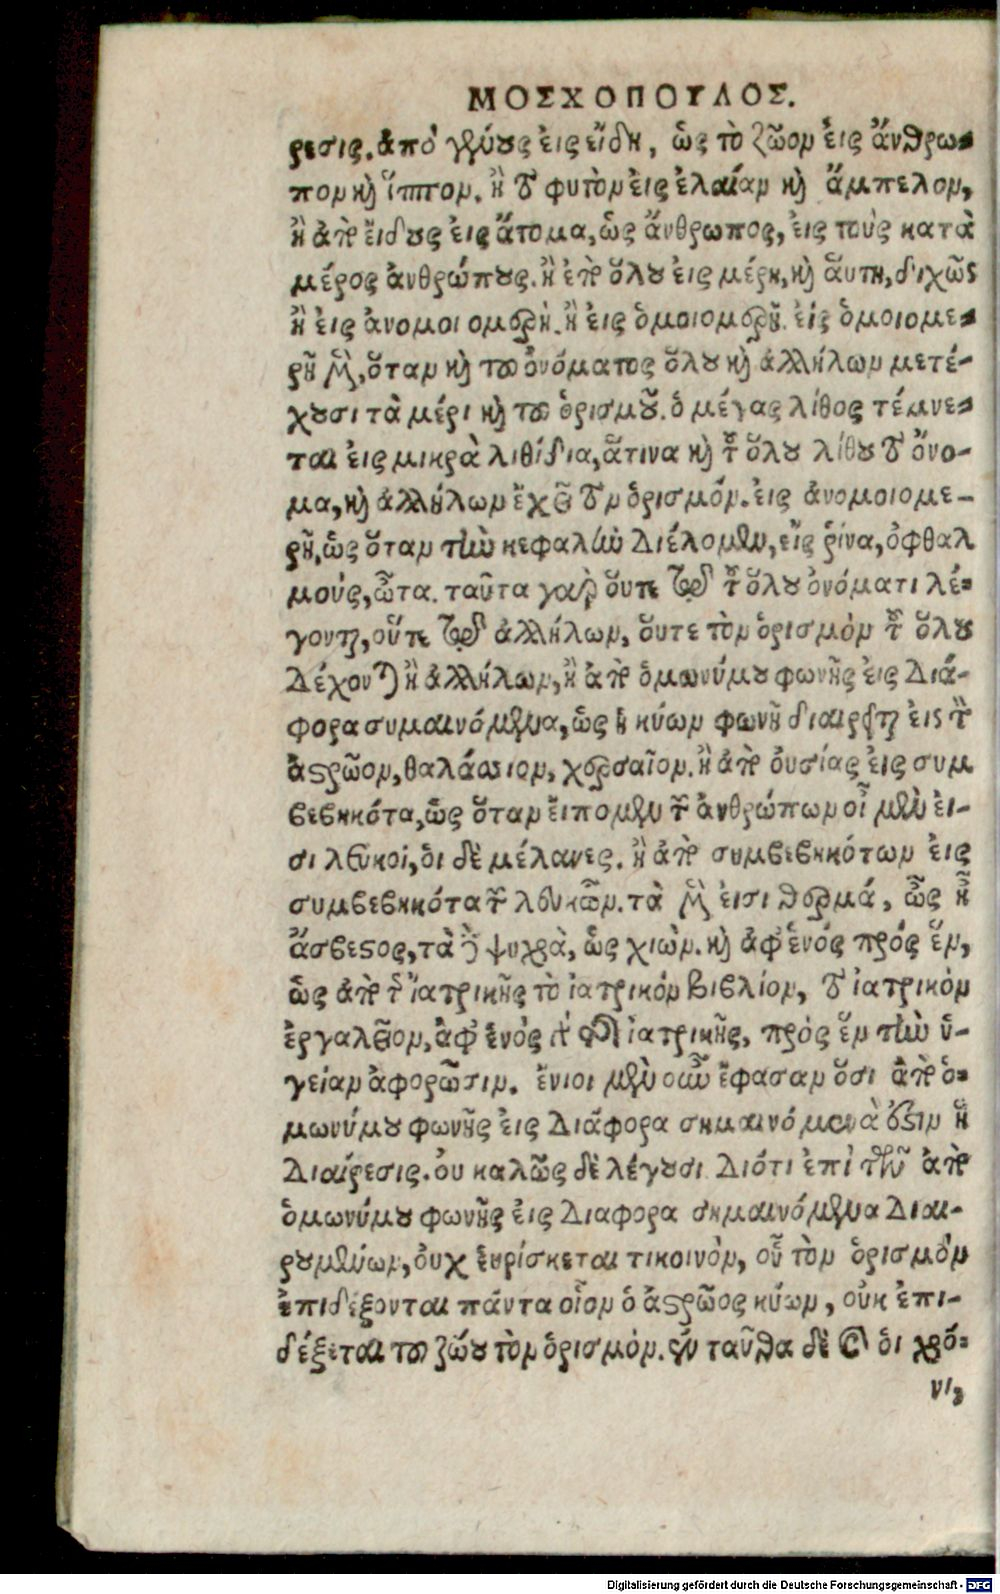 ΜΟΣΧΟΠΟΥΛΟΣ.
ρεσις. ἀπὸ γένους εἰς εἴδη, ὡς τὸ ζῶον εἰς ἄνθρω-
πον καὶ ἵππον. ἢ τὸ φυτὸν εἰς ἐλαίαν καὶ ἄμπελον,
ἢ ἀπὸ εἴδους εἰς ἄτομα, ὡς ἄνθρωπος, εἰς τοὺς κατὰ
μέρος ἀνθρώπους. ἢ ἀπὸ ὅλου εἰς μέρη, καὶ αὕτη, διχῶς
ἢ εἰς ἀνομοιομερῆ. ἢ εἰς ὁμοιομερῆ. εἰς ὁμοιομε-
ρῆ μὲν, ὅταν καὶ τοῦ ὀνόματος ὅλου καὶ ἀλλήλων μετέ-
χουσι τὰ μέρι καὶ τοῦ ὁρισμοῦ. ὁ μέγας λίθος τέμνε-
ται εἰς μικρὰ λιθίδια, ἅτινα καὶ τοῦ ὅλου λίθου τὸ ὄνο-
μα, καὶ ἀλλήλων ἔχει τὸν ὁρισμόν. εἰς ἀνομοιομε-
ρῆ, ὡς ὅταν τὴν κεφαλὴν διέλομεν, εἰς ῥίνα, ὀφθαλ
μούς, ὦτα. ταῦτα γὰρ οὔτε τῷ τοῦ ὅλου ὀνόματι λέ-
γονται, οὔτε τῷ ἀλλήλων, οὔτε τὸν ὁρισμὸν τοῦ ὅλου
δέχονται ἢ ἀλλήλων, ἢ ἀπὸ ὁμωνύμου φωνῆς εἰς διά-
φορα συμαινόμενα, ὡς ἡ κύων φωνὴ διαιρεῖται εἰς τὸν
ἀστρῶον, θαλάσσιον, χερσαῖον. ἢ ἀπὸ οὐσίας εἰς συμ
βεβηκότα, ὡς ὅταν εἴπομεν τῶν ἀνθρώπων οἱ μὲν εἰ-
σι λευκοὶ, οἱ δὲ μέλανες. ἢ ἀπὸ συμβεβηκότων εἰς
συμβεβηκότα τῶν λευκῶν. τὰ μὲν εἰσι θερμά, ὡς ἡ
ἄσβεστος, τὰ δὲ ψυχρὰ, ὡς χιὼν. καὶ ἀφ' ἑνός πρός ἕν,
ὡς ἀπὸ τῆς ἰατρικῆς τὸ ἰατρικόν βιβλίον, τὸ ἰατρικὸν
ἐργαλεῖον, ἀφ' ἑνὸς τῆς ἰατρικῆς, πρός ἕν τὴν ὑ-
γείαν ἀφορῶσιν. ἔνιοι μὲν οὖν ἔφασαν ὅσι ἀπὸ ὁ-
μωνύμου φωνῆς εἰς διάφορα σημαινόμενὰ ἐστιν ἡ
διαίρεσις. οὐ καλῶς δὲ λέγουσι διότι ἐπὶ τῶν ἀπὸ
ὁμωνύμου φωνῆς εἰς διαφορα σημαινόμενα διαι-
ρουμένων, οὐχ εὑρίσκεται τικοινὸν, οὗ τὸν ὁρισμὸν
ἐπιδέξονται πάντα οἷον ὁ ἀστρῶος κύων, οὐκ ἐπι-
δέξεται τοῦ ζώου τὸν ὁρισμὸν. ἐνταῦθα δὲ καὶ οἱ χρό-
νι,
Digitalisierung gefördert durch die Deutsche Forschungsgemeinschaft - DFG